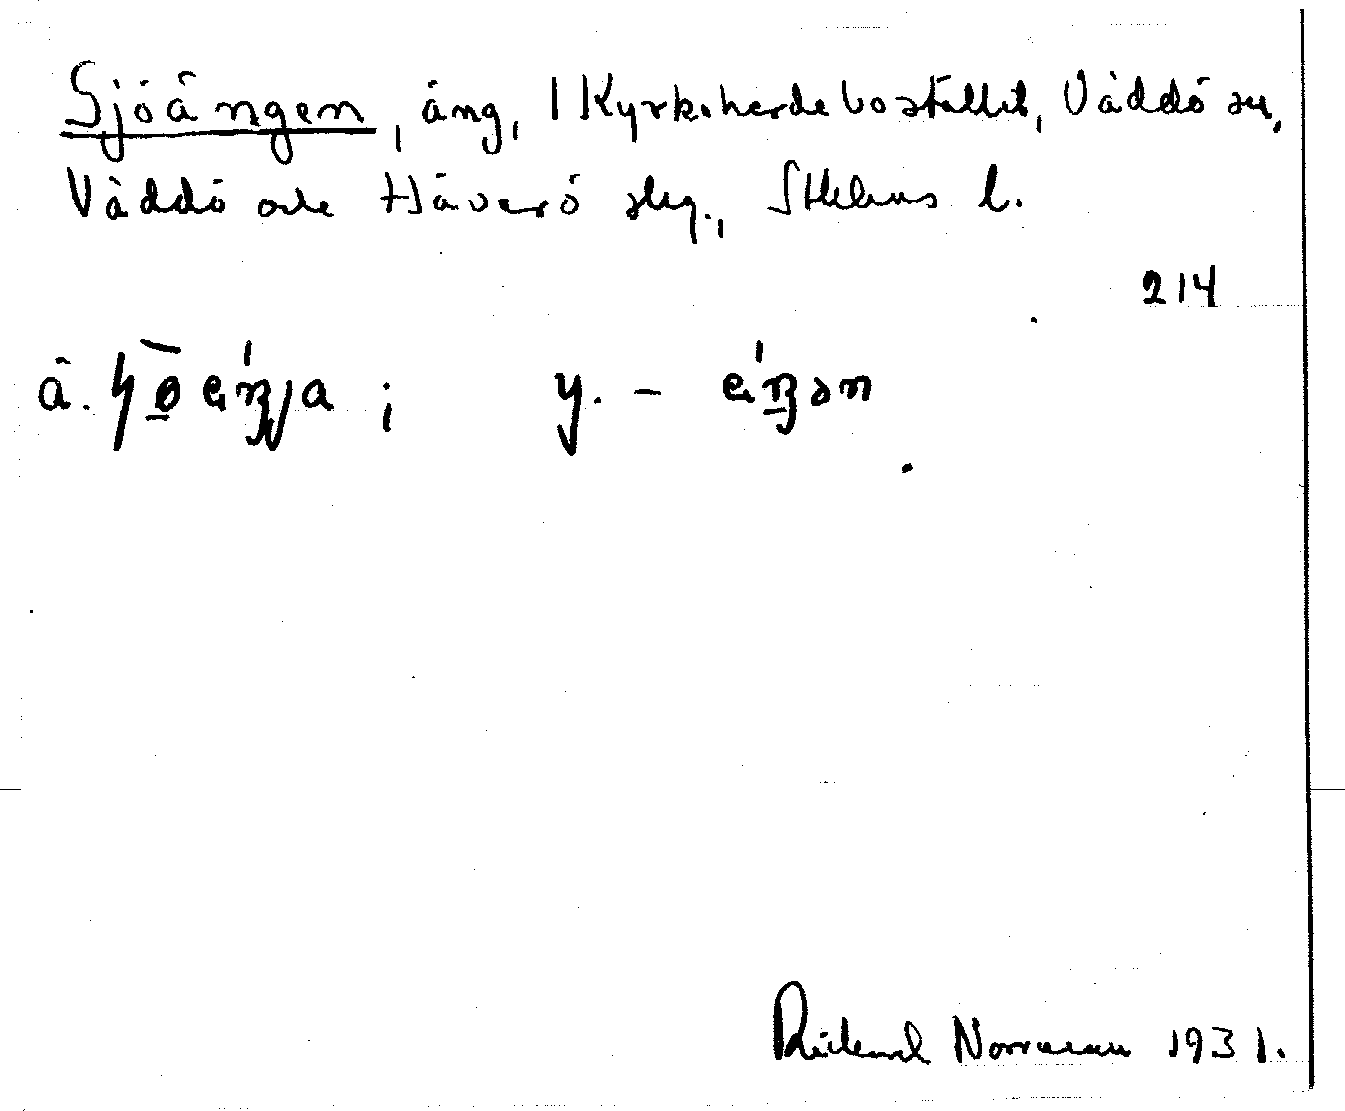 Sjöängen, äng, 1 Kyrkoherdebostället, Väddö sn,
Väddö och Häverö skg., Sthlms l.
214
ä.
; y. –
Rickard Norrman 1931.